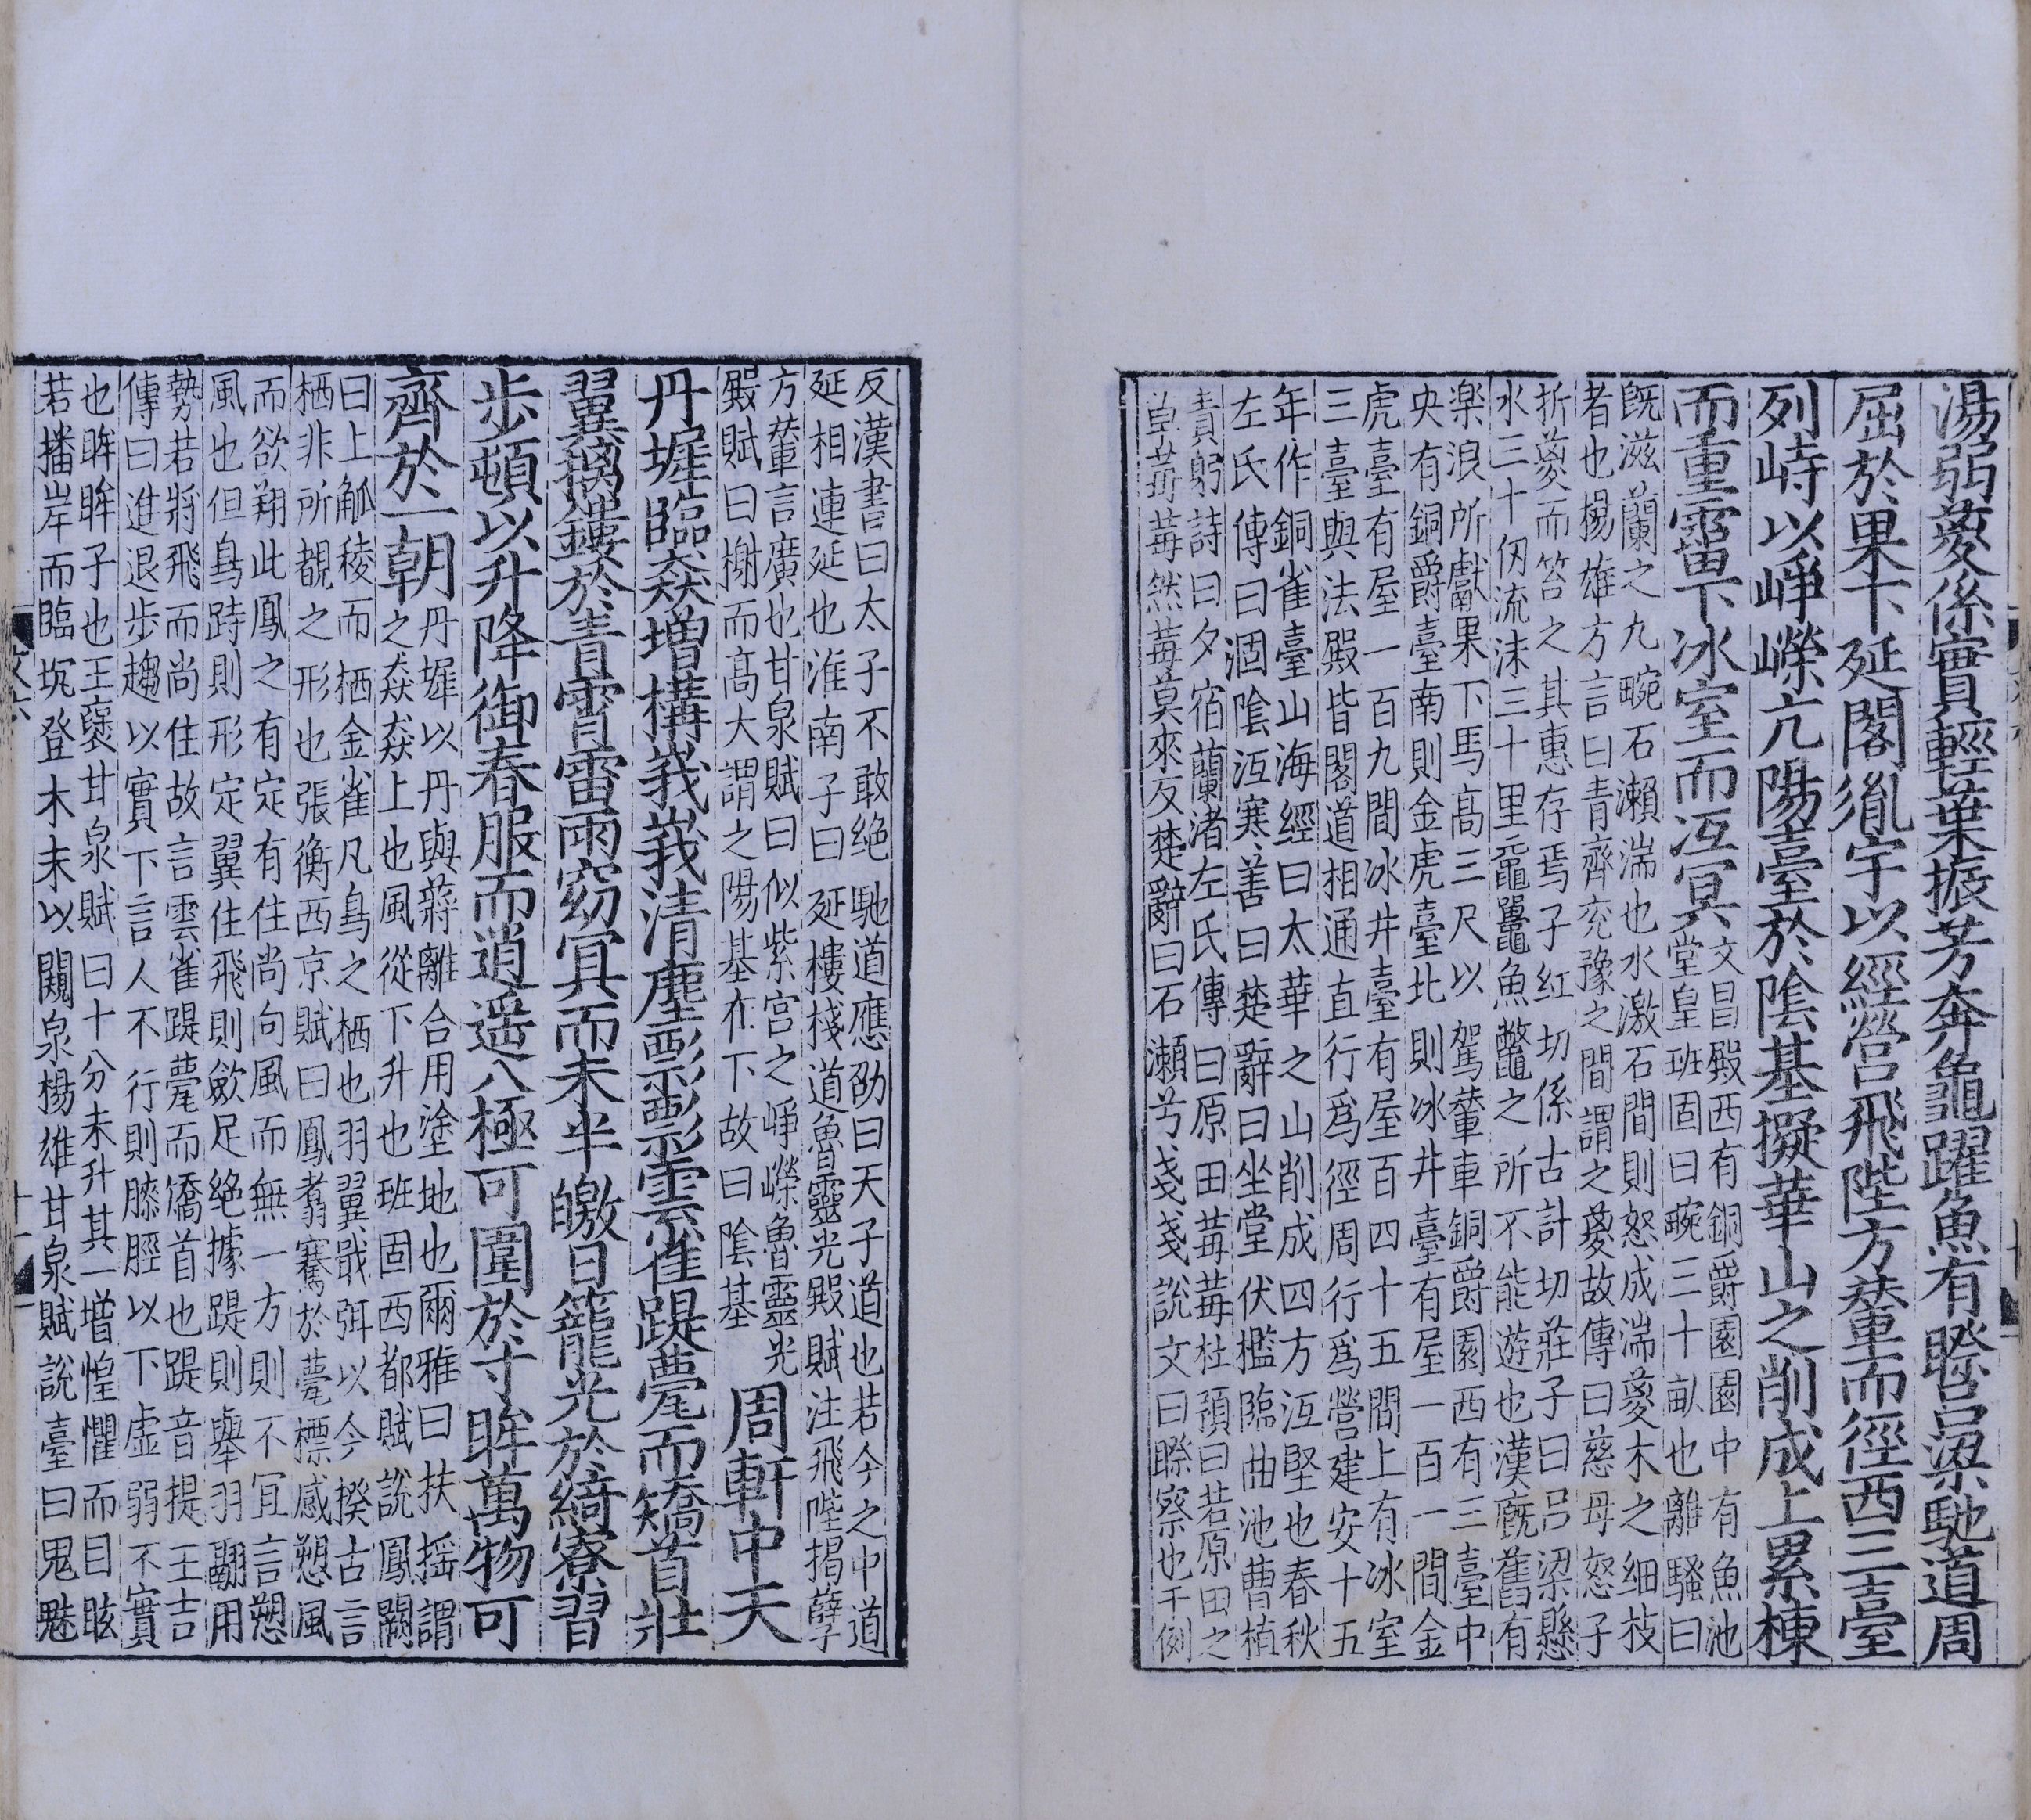 湯弱葼係實輕葉振芳奔龜躍魚有䁲吕梁馳道周
屈於果下延閣胤宇以經營飛陛方輦而徑西三臺
列峙以崢嶸亢陽臺於陰基擬華山之削成上累棟
而重霤下冰室而沍冥
文昌殿西有銅爵園園中有魚池
堂皇班固曰畹三十畝也離騷曰
旣滋蘭之九畹石瀨湍也水激石間則怒成湍葼木之細枝
者也楊雄方言曰青齊兖豫之間謂之葼故傳曰慈母怒子
折葼而笞之其惠存焉子紅切係古計切莊子曰吕梁懸
水三十仞流沫三十里黿鼉魚鼈之所不能遊也漢廐舊有
樂浪所獻果下馬髙三尺以駕輦車銅爵園西有三臺中
央有銅爵臺南則金虎臺北則冰井臺有屋一百一間金
虎臺有屋一百九間冰井臺有屋百四十五間上有冰室
三臺與法殿皆閣道相通直行爲徑周行爲營建安十五
年作銅雀臺山海經曰太華之山削成四方沍堅也春秋
左氏傳曰涸陰沍寒善曰楚辭曰坐堂伏檻臨曲池曹植
責躬詩曰夕宿蘭渚左氏傳曰原田莓莓杜預曰若原田之
草莓莓然莓莫來反楚辭曰石瀨兮戔戔說文曰䁲察也千例
反漢書曰太子不敢絶馳道應劭曰天子道也若今之中道
延相連延也淮南子曰延樓棧道魯靈光殿賦注飛陛揭孽
方輦言廣也甘泉賦曰似紫宫之崢嶸魯靈光
殿賦曰榭而髙大謂之陽基在下故曰陰基
周軒中天
丹墀臨猋增構峩峩清塵彯彯雲雀踶甍而矯首壯
翼摛鏤於青霄雷雨窈冥而未半皦日籠光於綺寮習
步頓以升降御春服而逍遥八極可圍於寸眸萬物可
齊於一朝
丹墀以丹與蔣離合用塗地也爾雅曰扶摇謂
之猋猋上也風從下升也班固西都賦說鳳闕
曰上觚稜而栖金雀凡鳥之栖也羽翼戢弭以今揆古言
栖非所覩之形也張衡西京賦曰鳳翥騫於甍標感愬風
而欲翔此鳳之有定有住尚向風而無一方則不冝言愬
風也但鳥跱則形定翼住飛則斂足絶據踶則舉羽翮用
勢若將飛而尚住故言雲雀踶甍而矯首也踶音提王吉
傳曰進退步趨以實下言人不行則膝脛以下虚弱不實
也眸眸子也王襃甘泉賦曰十分未升其一增惶懼而目眩
若播岸而臨坑登木末以闚泉楊雄甘泉賦說臺曰鬼魅